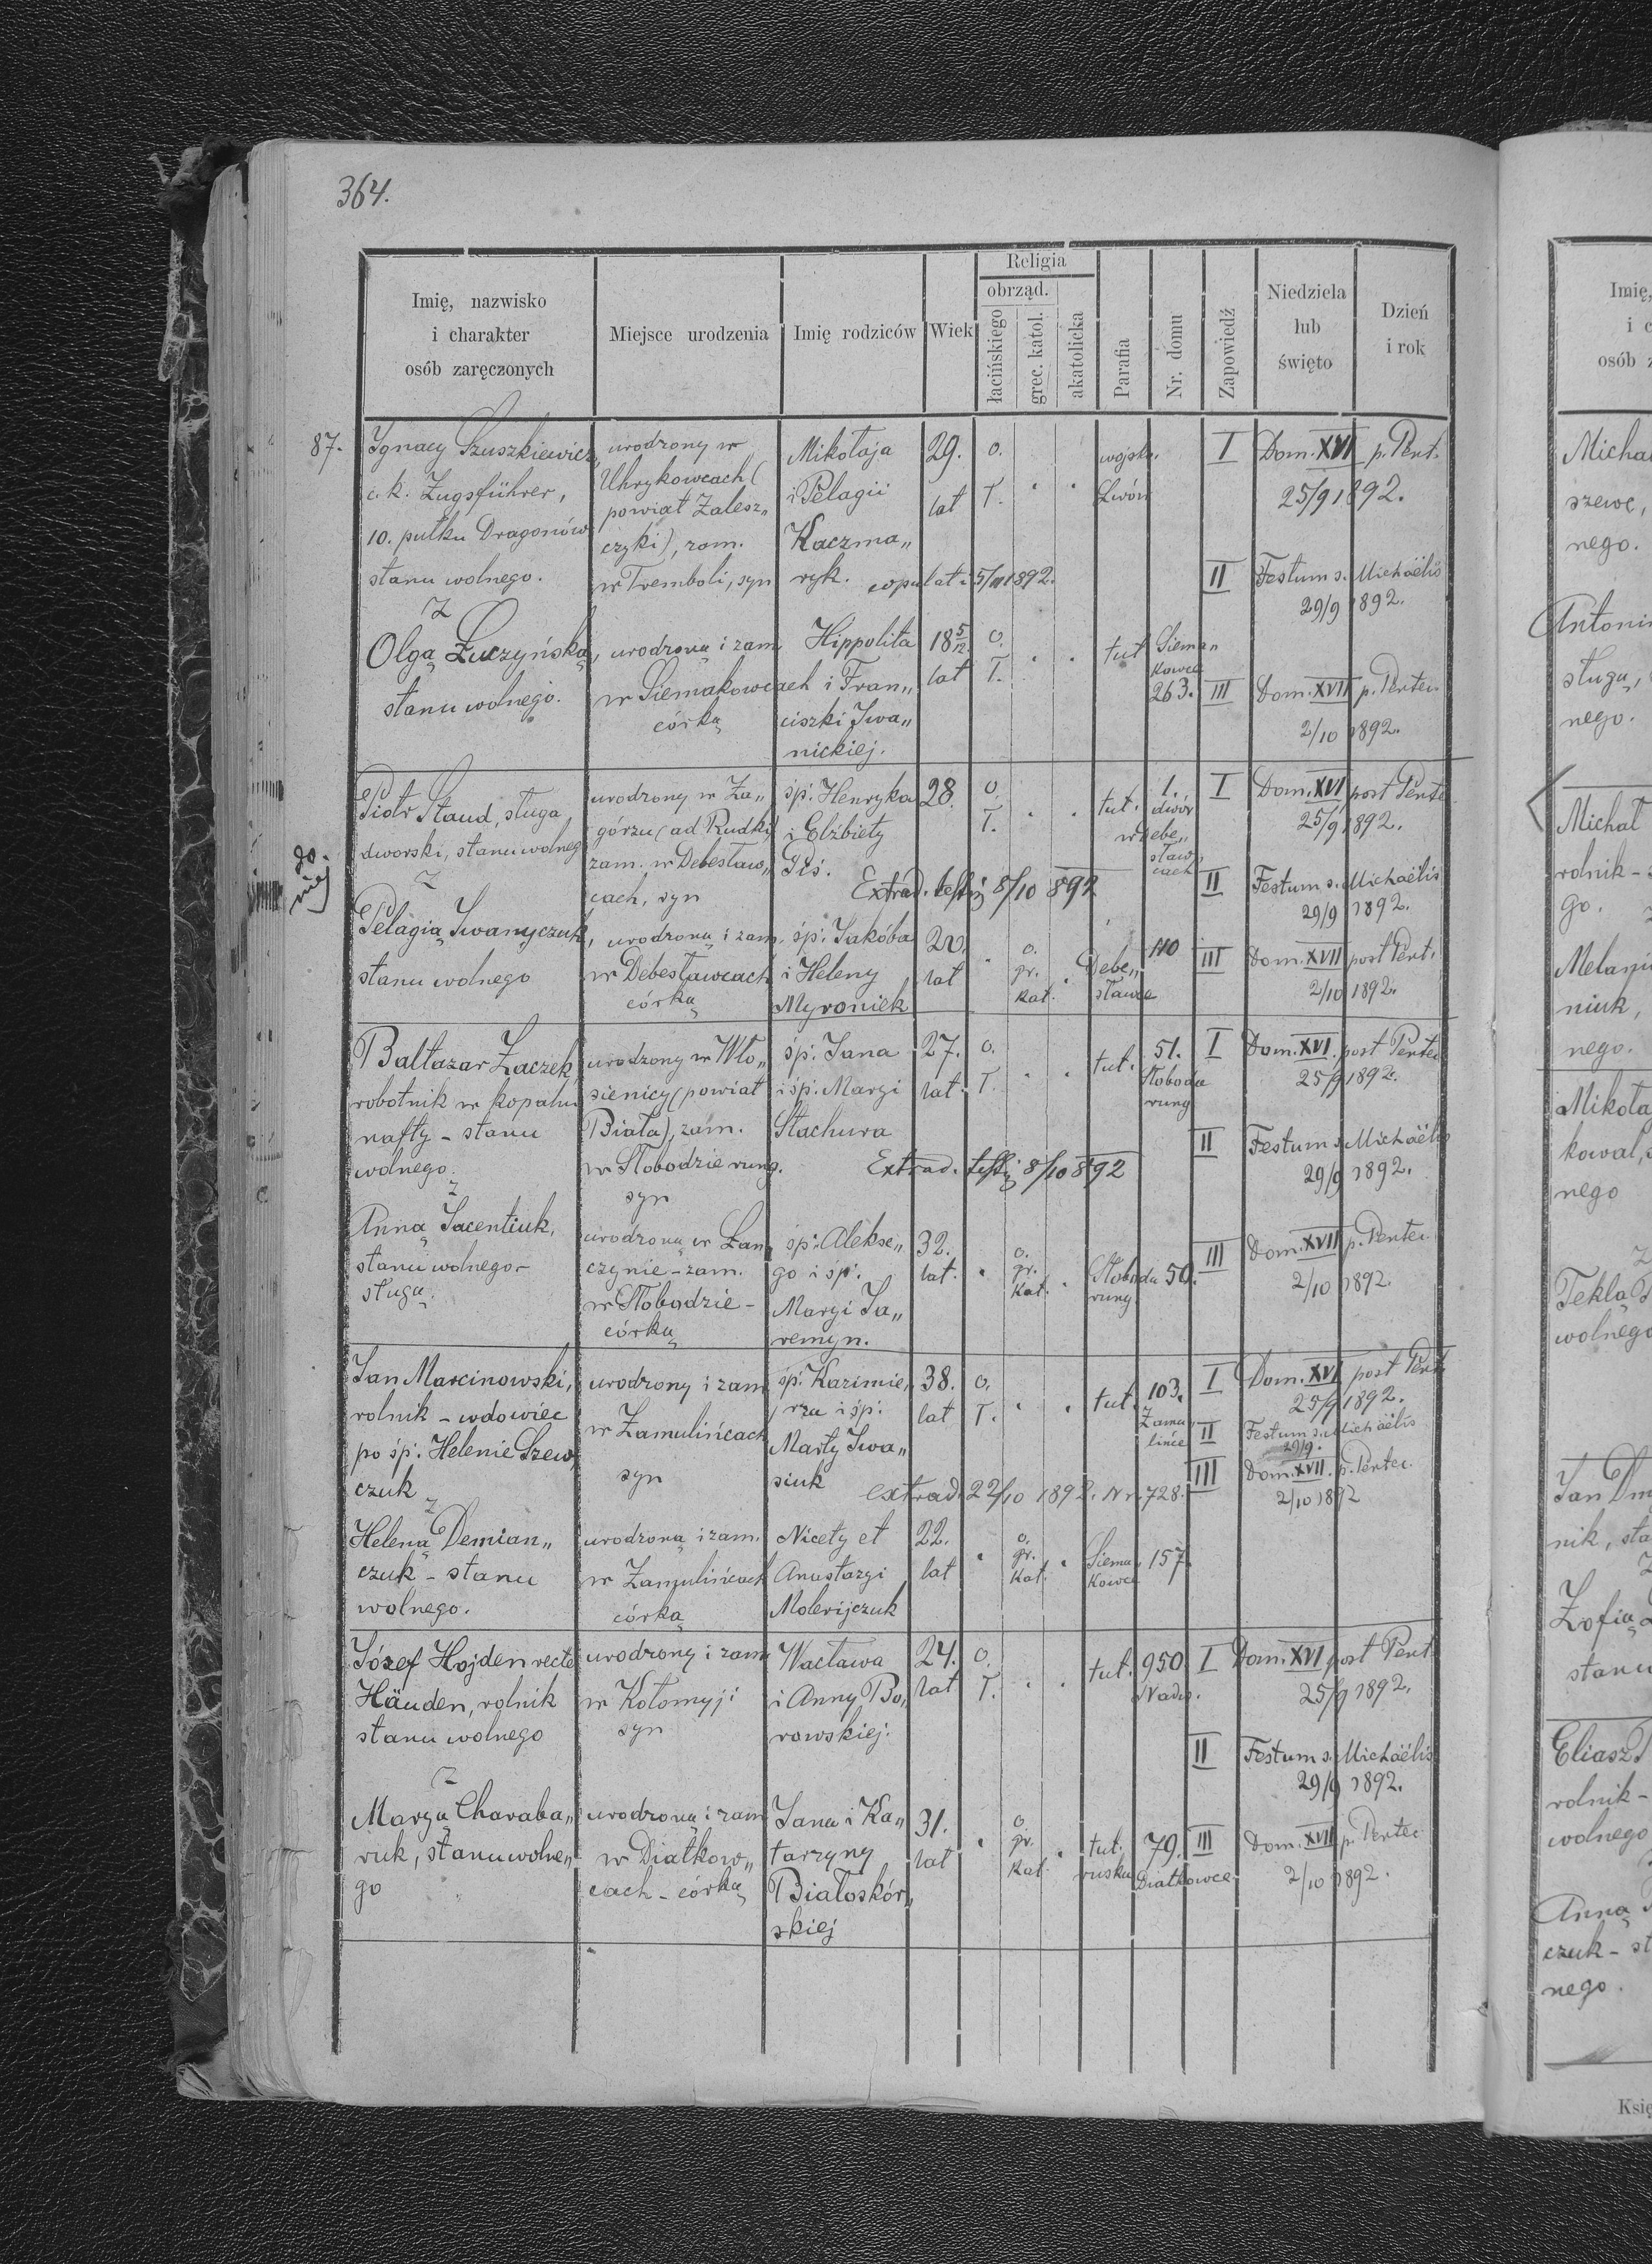 364.
Imię, nazwisko
i charakter
osób zaręczonych
Miejsce urodzenia
Imię rodziców
Wiek
Religia
obrząd.
łacińskiego
grec. katol.
akatolicka
Parafia
Nr. domu
Zapowiedź
Niedziela
lub
święto
Dzień
i rok
87.
Ignacy Szuszkiewicz,
c. k. Zugsführer,
10. pułku Dragonów
stanu wolnego.
z
urodzony w
Uhrykowcach (
powiat Zalesz„
czyki), zam.
w Tremboli, syn
Mikołaja
i Pelagii
Kaczma„
ryk.
copulati 5/11 1892.
29.
lat
o.
ł.
wojsko.
Lwów
I Dom. XVI p. Pent.
25/9 1892.
II Festum s. Michäelis
29/9 1892.
Olgą Łuczyńską,
stanu wolnego.
urodzoną i zam.
w Siemakowcach
córką
Hippolita
i Fran„
ciszki Iwa„
nickiej.
18 5/12
lat
o.
ł.
tut
Siema„
kowce
263.
III Dom. XVII p. Pentec.
2/10 1892.
Piotr Staud, sługa
dworski, stanu wolneg
z
urodzony w Za„
górzu (ad Rudki)
zam. w Debesław„
cach, syn
śp. Henryka
i Elżbiety
Piś.
Extrad. testij 8/10 892
28.
o.
ł.
tut.
1.
dwór
w Debe„
sław„
cach
I Dom. XVI post Pente
25/9 1892.
II Festum s. Michäelis
29/9 1892.
Pelagią Iwanyczuk,
stanu wolnego
urodzoną i zam.
w Debesławcach
córką
śp. Jakóba
i Heleny
Myroniek
20.
lat
o.
gr.
kat.
Debe„
sławce
110
III Dom. XVII post Pent.
2/10 1892.
Baltazar Zaczek,
robotnik w kopalni
nafty - stanu
wolnego.
z
urodzony w Wło„
sienicy (powiat
Biała), zam.
w Słobodzie rung.
syn
śp. Jana
i śp. Maryi
Stachura
Extrad. testij 8/10 892
27.
lat
o.
ł.
tut.
51.
Słoboda
rung
I Dom. XVI. post Pentec
25/9 1892.
II Festum s. Michäelis
29/9 1892.
Anną Jacentiuk,
stanu wolnego -
sługą.
urodzoną w Łan„
czynie - zam.
w Słobodzie -
córką
śp. Alekse„
go i śp.
Maryi Ja„
remyn.
32.
lat.
o.
gr.
kat.
Słoboda
rung.
50.
III Dom. XVII p. Pentec.
2/10 1892.
Jan Marcinowski,
rolnik - wdowiec
po śp. Helenie Szew„
czuk
z
urodzony i zam
w Zamulińcach
syn
śp. Kazimie„
rza i śp.
Marty Iwa„
siuk
extrad. 22/10 1892. Nr. 728.
38.
lat
o.
ł.
tut.
103.
Zamu„
lińce
I Dom. XVI post Pent
25/9 1892.
II Festum s. Michäelis
29/9.
III Dom. XVII. p. Pentec.
2/10 1892
Heleną Demian„
czuk - stanu
wolnego.
urodzoną i zam.
w Zamulińcach
córką
Nicety et
Anastazyi
Molerijczuk
22.
lat
o.
gr.
kat.
Siema„
kowce
157.
Józef Hojden recte
Häuden, rolnik
stanu wolnego
z
urodzony i zam
w Kołomyji
syn
Wacława
i Anny Bo„
rowskiej.
24.
lat
o.
ł.
tut.
950
Nadw.
I Dom. XVI post Pent
25/9 1892.
II Festum s. Michäelis
29/9 1892.
Maryą Charaba„
ruk, stanu wolne„
go
urodzoną i zam
w Diatkow„
cach - córką
Jana i Ka„
tarzyny
Białoskór„
skiej
31.
lat
o.
gr.
kat.
tut.
ruska
79.
Diatkowce
III Dom. XVII p. Pentec
2/10 1892.
Imię,
i c
osób z
Micha
szewc,
nego.
Antoni
sługa,
nego.
Michał
rolnik -
go.
Melani
niuk,
nego.
Mikoła
kowal,
nego
Teklą
wolnego
Jan Dm
nik, sta
Zofią
stanu
Eliasz
rolnik -
wolnego
Anną
czuk - st
nego.
Księ